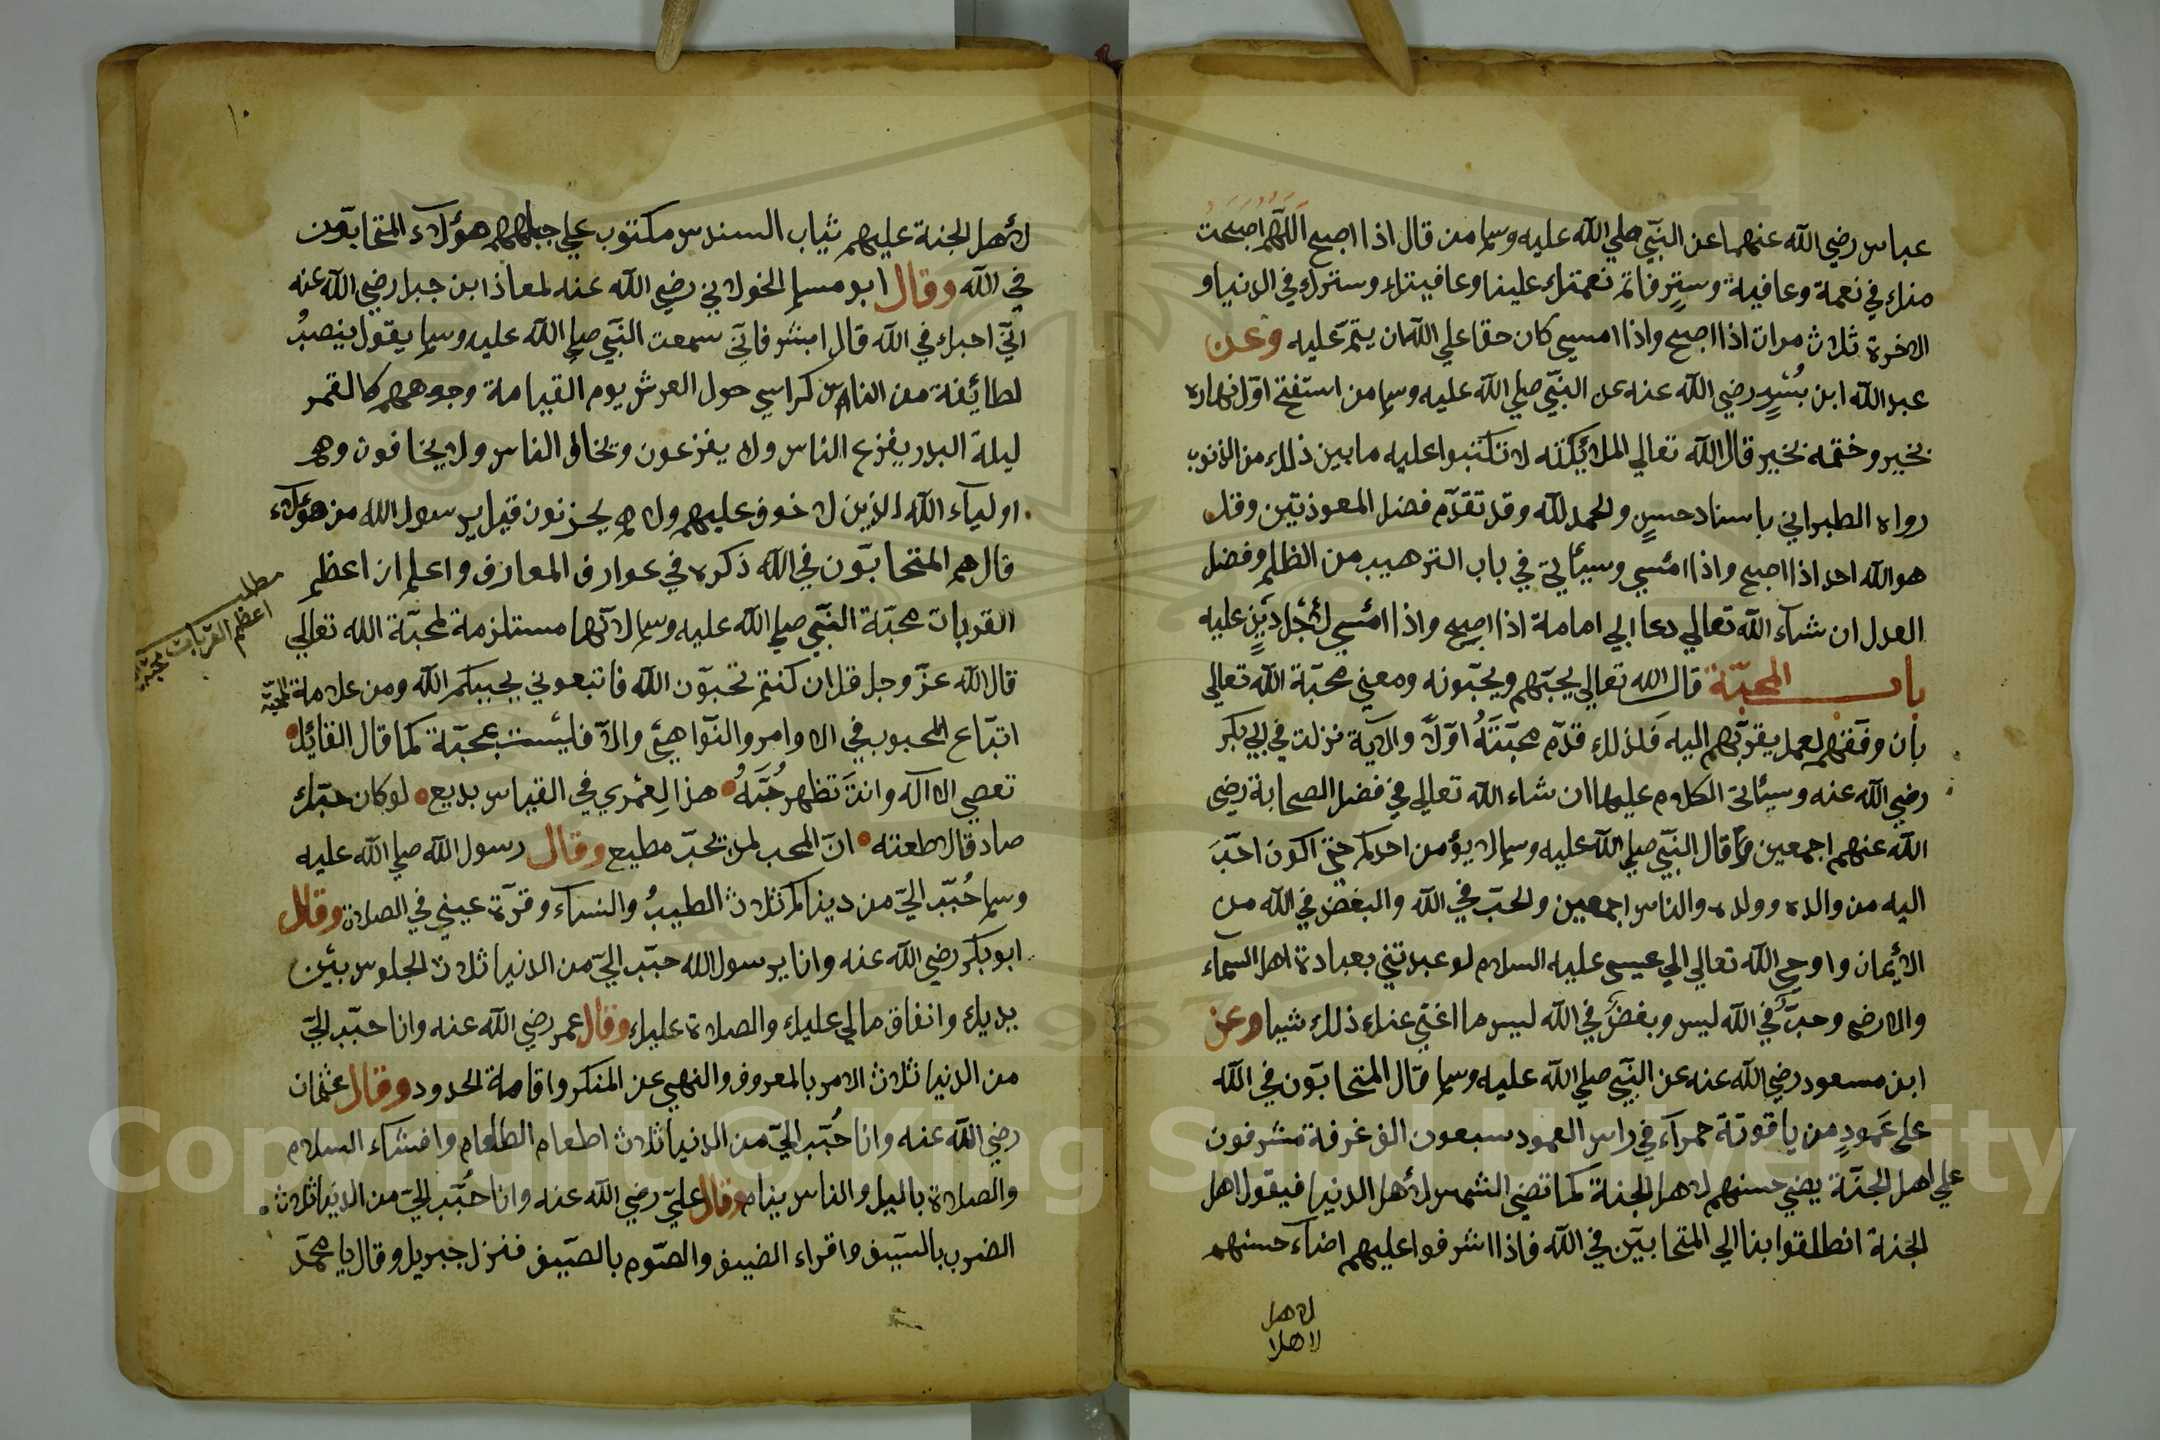 عباس رضي الله عنهما عن النبي صلي الله عليه وسلم من قال اذا اصبح اللَّهُمَّ اَصْبَحتُ
منك في نعمة وعافية وستر فاتم نعمتك علينا وعافيتك وسترك في الدنيا و
الاخرة ثلاث مرات اذا اصبح واذا امسي كان حقا علي الله ان يتم عليه وعن
عبد الله ابن بُسْرٍ رضي الله عنه عن النبي صلي الله عليه وسلم من استفتح اول نهاره
بخير وختمه بخير قال الله تعالي الملائكته لا تكتبوا عليه ما بين ذلك من الذنوب
رواه الطبراني باسناد حسنٍ والحمد لله وقد تقدّم فضل المعوذتين وقل
هو الله احد اذا اصبح واذا امسي وسيأتي في باب الترهيب من الظلم وفضل
العدل ان شاء الله تعالي دعا ابي امامة اذا اصبح واذا امسي لأجْل دَيْنٍ عليه
باب المحبّة قال الله تعالي يحبّهم ويحبّونه ومعني محبّة الله تعالي
بان وفّقهم لعمل يقرّبهم اليه فَلذلك قدّم محبّتَهُ اوّلاً والاية نزلت في ابي بكر
رضي الله عنه وسيأتي الكلام عليها ان شاء الله تعالي في فضل الصحابة رضي
الله عنهم اجمعين وقال النبي صلي الله عليه وسلم لا يؤمن احدكم حتي اكون احبّ
اليه من والده وولده والناس اجمعين والحب في الله والبغض في الله من
الأيمان واوحي الله تعالي الي عيسى عليه السلام لو عبدتني بعبادة اهل السماء
والارض وحبٌّ في الله ليس وبغضٌ في الله ليس ما اغني عنك ذلك شيا وعن
ابن مسعود رضي الله عنه عن النبي صلي الله عليه وسلم قال المتحابّون في الله
على عَمودٍ من ياقوتة حمراء في راس العمود سبعون الف غرفة مشرفون
علي اهل الجنّة يضي حسنهم لاهل الجنة كما تضي الشمس لأهل الدنيا فيقول اهل
الجنة انطلقوا بنا الي المتحابين في الله فاذا اشرفوا عليهم اضاء حسنهم
لاهل
لاهل
١٠
لأهل الجنة عليهم ثياب السندس مكتوب علي جباههم هؤلاء المتحابّون
في الله وقال ابو مسلم الخولاني رضي الله عنه لمعاذ ابن جبل رضي الله عنه
انّي احبك في الله قال ابشر فانّي سمعت النبي صلي الله عليه وسلم يقول ينصبُ
لطائفة من الناس كراسي حول العرش يوم القيامة وجوههم كالقمر
ليلة البدر يفزع الناس ولا يفزعون وتخاف الناس ولا يخافون وهم
اولياء الله الذين لا خوف عليهم ولا هم يحزنون قيل يرسول الله من هؤلاء
قال هم المتحابّون في الله ذكره في عوارف المعارف واعلم ان اعظم
القربات محبّة النبي صلي الله عليه وسلم لانّها مستلزمة لمحبّة الله تعالي
قال الله عزّ وجل قل ان كنتم تحبّون الله فاتبعوني يحببكم الله ومن علامة المحبّة
اتبّاع المحبوب في الاوامر والنّواهي والاّ فليست بمحبّة كما قال القائل
تعصي الاله وانتَ تظهر حُبَّهُ هذا لعمري في القياس بديع لو كان حبّك
صادقا لاطعته انّ المحب لمن يحبّ مطيع وقال رسول الله صلي الله عليه
وسلم حُبّب اليّ من دنياكم ثلاث الطيبُ والنساء وقرّة عيني في الصلاة وقال
ابو بكر رضي الله عنه وانا يرسول الله حبّب اليّ من الدنيا ثلاث الجلوس بين
يديك وانفاق مالي عليك والصلاة عليك وقال عمر رضي الله عنه وانا حبّب اليّ
من الدنيا ثلاث الامر بالمعروف والنهي عن المنكر واقامة الحدود وقال عثمان
رضي الله عنه وانا حُبّب اليّ من الدنيا ثلاث اطعام الطعام وافشاء السلام
والصلاة بالليل والناس نيام وقال عليّ رضي الله عنه وانا حُبّب اليّ من الدنيا ثلاث
الضرب بالسيف واقراء الضيف والصّوم بالصّيف فنزل جبريل وقال يا محمّد
مطلب
اعظم القربات محبّة
Copyright © King Saud University